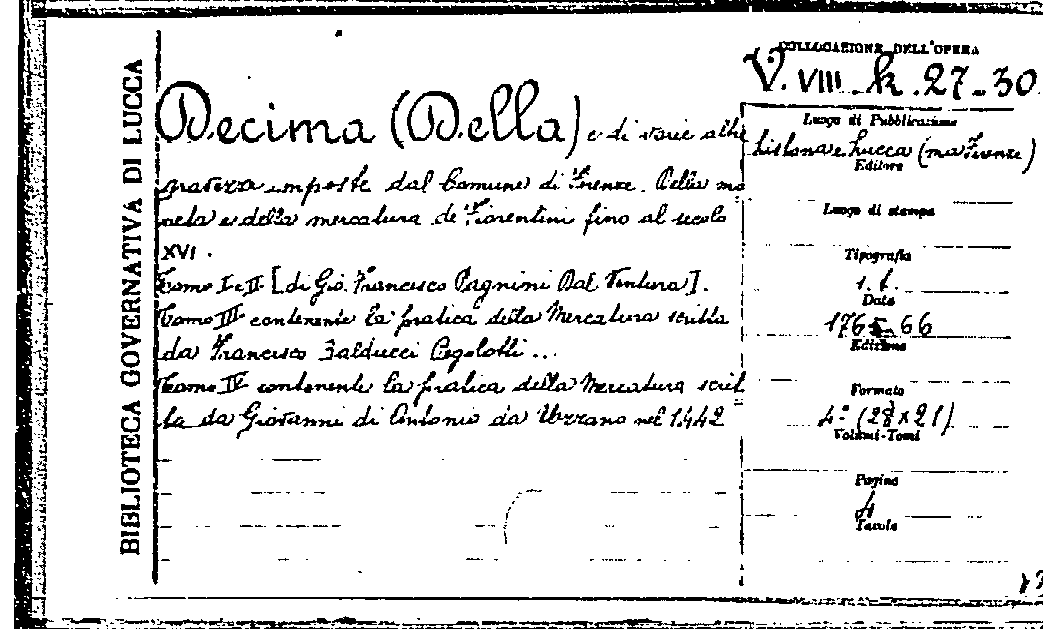 BIBLIOTECA GOVERNATIVA DI LUCCA
Decima (Della) e di varie altre
gravezze imposte dal Comune di Firenze. Della mo
neta e della mercatura de' Fiorentini fino al secolo
XVI.
Tomo I-II [di Gio. Francesco Pagnini Dal Ventura].
Tomo III contenente la pratica della Mercatura scritta
da Francesco Balducci Pegolotti...
Tomo IV contenente la pratica della Mercatura scrit
ta da Giovanni di Antonio da Uzzano nel 1442
COLLOCAZIONE DELL'OPERA
V. VIII. k. 27-30
Luogo di Pubblicazione
Lisbona e Lucca (ma Firenze)
Editore
Luogo di stampa
Tipografia
s. t.
Data
1765-66
Edizione
Formato
4° (28 x 21)
Volumi-Tomi
Pagine
4
Tavole